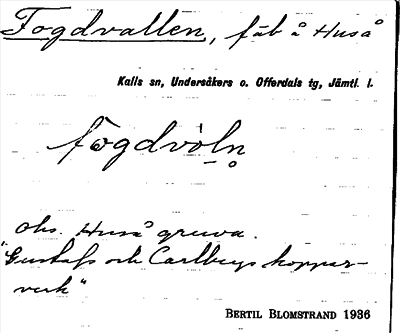 Fogdvallen, fäb å Huså
Kalls sn, Undersåkers o. Offerdals tg, Jämtl. l.
fògdvöln
obs. Huså gruva.
"Gustafs och Carlbergs koppar-
verk"
BERTIL BLOMSTRAND 1936